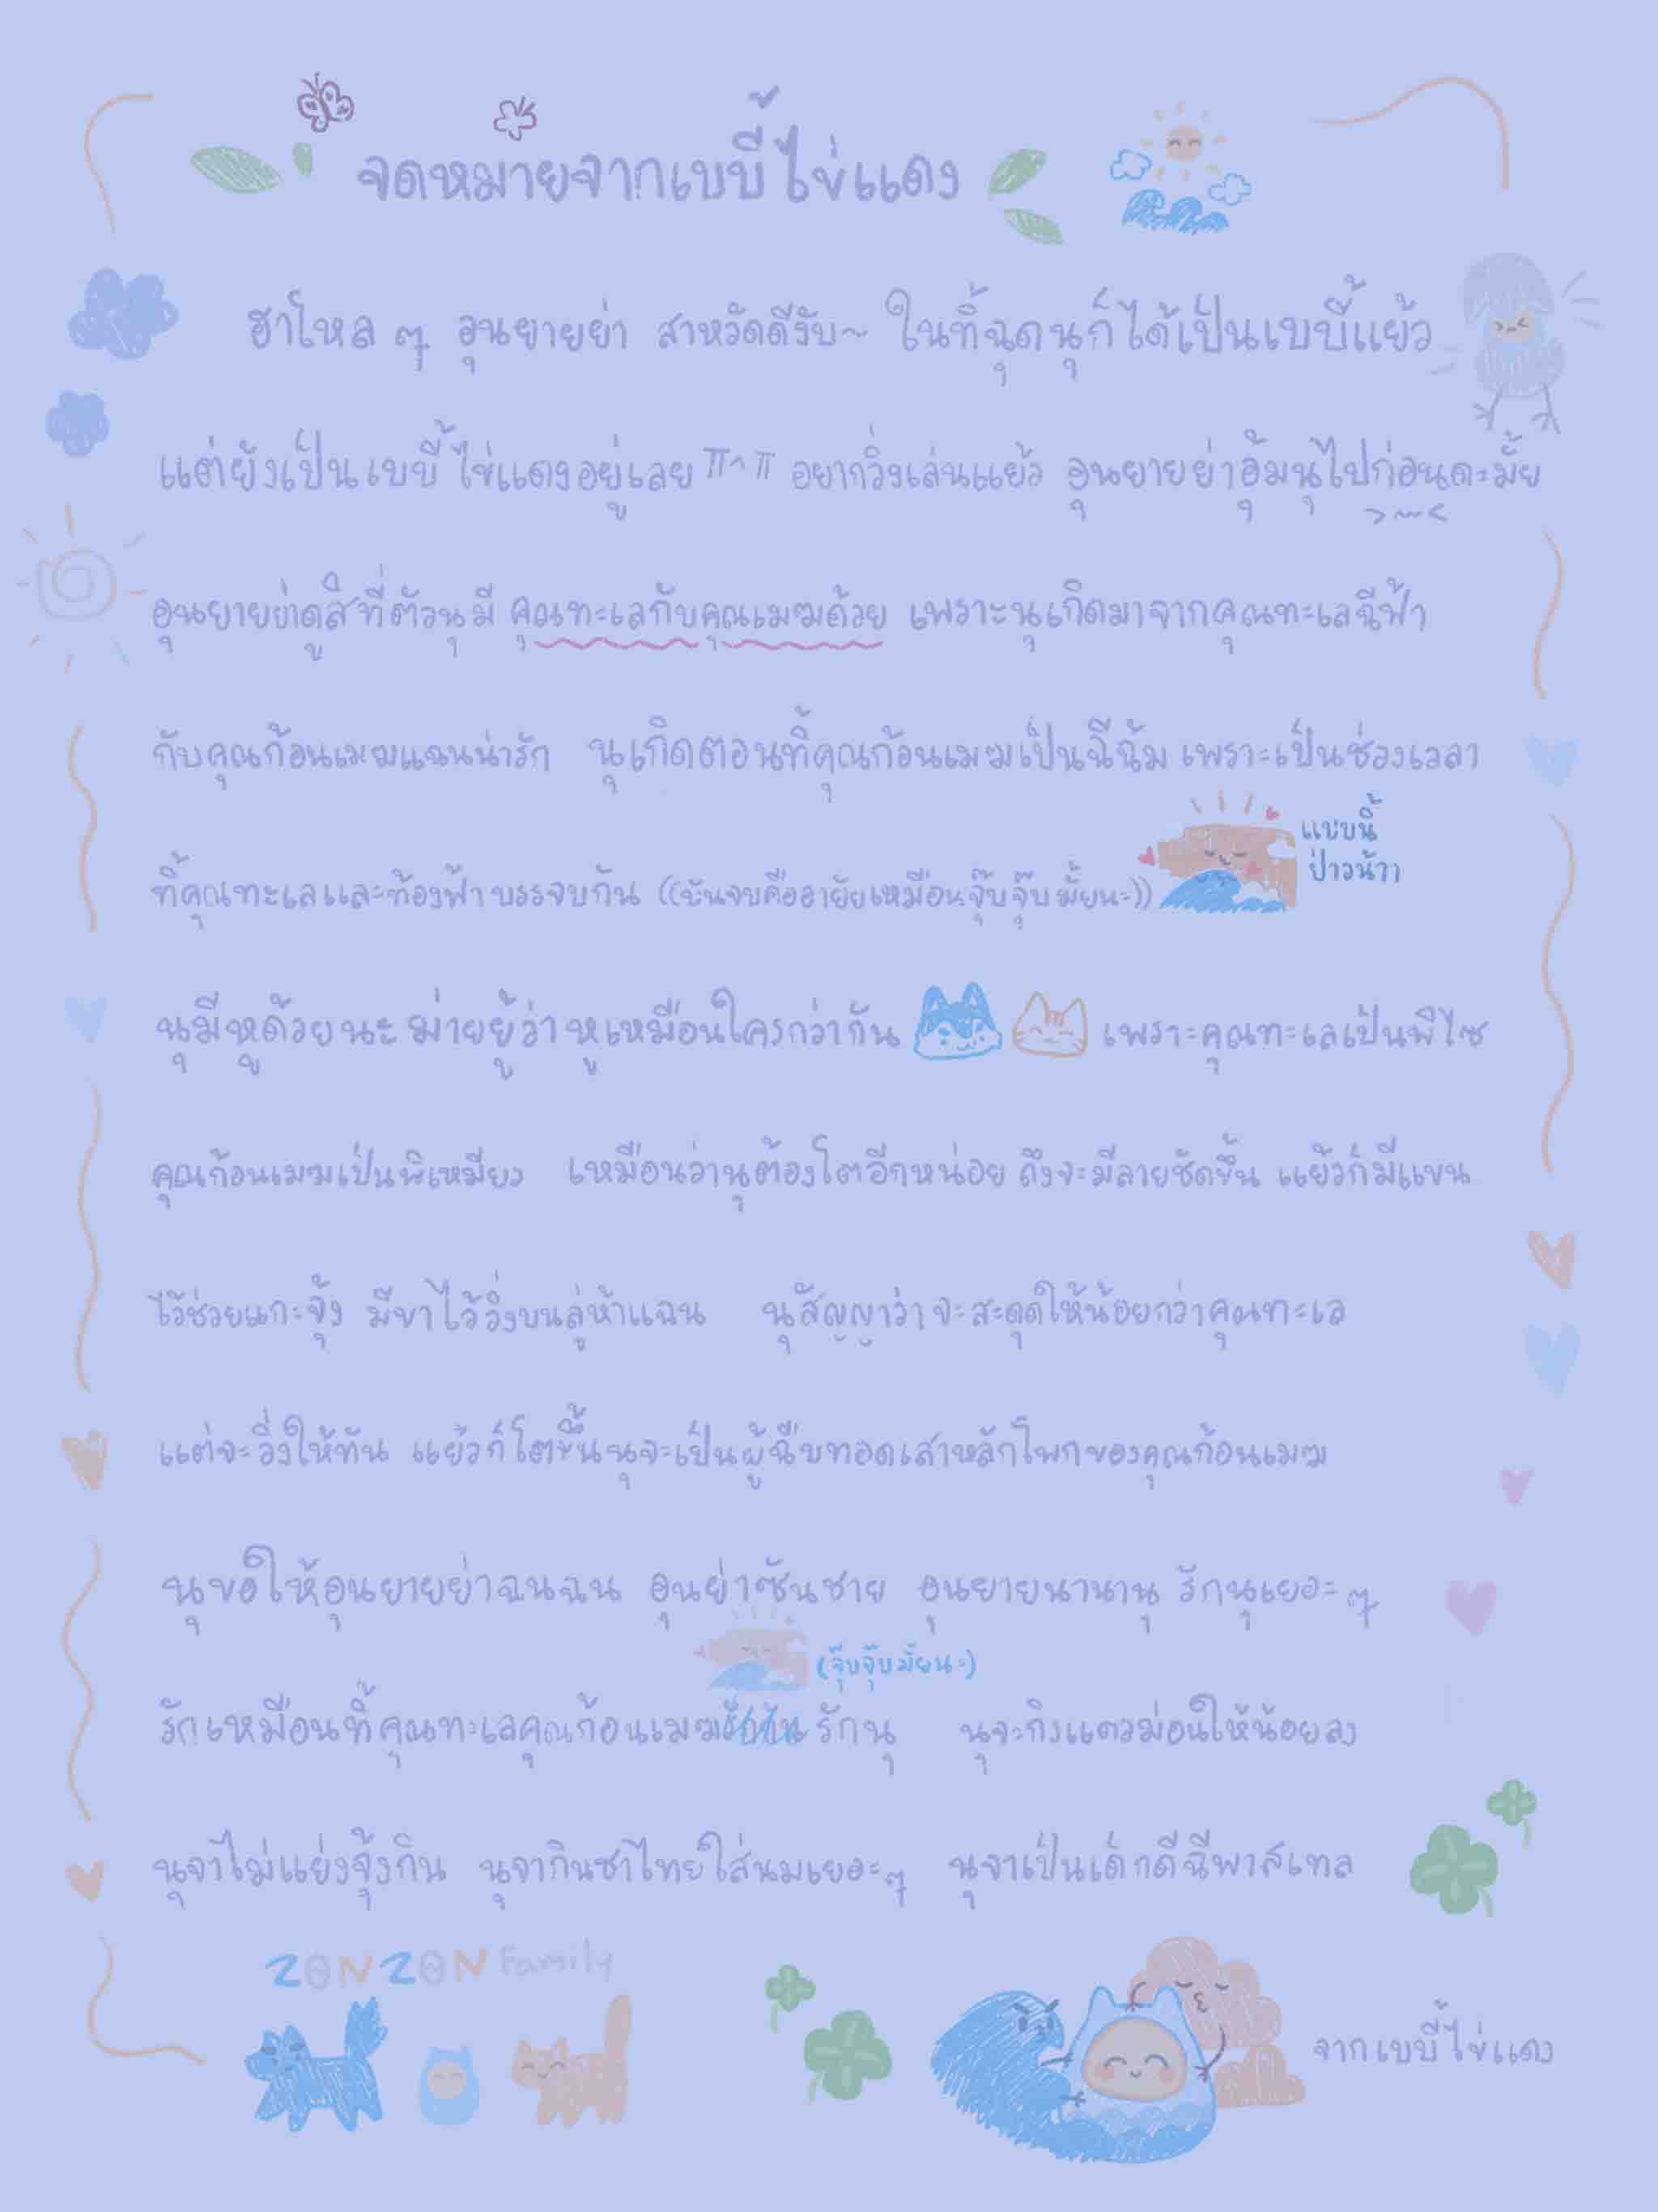 จดหมายจากเบบี้ไข่แดง
ฮาโหล ๆ อุนยายย่า สาหวัดดีงับ~ ในทิ้ฉุดนุก็ได้เป็นเบบี้แย้ว
แต่ยังเป็นเบบี้ไข่แดงอยู่เลย π^π อยากวิ่งเล่นแย้ว อุนยายย่าอุ้มนุไปก่อนดะมั้ย
>~<
อุนยายย่าดูสิที่ตัวนุมี คุณทะเลกับคุณเมฆด้วย เพราะนุเกิดมาจากคุณทะเลฉีฟ้า
กับคุณก้อนเมฆแฉนน่ารัก นุเกิดตอนทิ้คุณก้อนเมฆเป็นฉีฉ้ม เพราะเป็นช่วงเวลา
แบบนี้
ป่าวน้าา
ทิ้คุณทะเลและท้องฟ้าบรรจบกัน ((บันจบคืออายัยเหมือนจุ๊บจุ๊บมั้ยนะ))
นุมีหูด้วยนะ ม่ายยู้ว่าหูเหมือนใครกว่ากัน เพราะคุณทะเลเป็นพิไซ
คุณก้อนเมฆเป็นพิเหมียว เหมือนว่านุต้องโตอีกหน่อย ถึงจะมีลายชัดขึ้น แย้วก็มีแขน
ไว้ช่วยแกะจุ้ง มีขาไว้วิ่งบนลู่ห้าแฉน นุสัญญาว่าจะสะดุดให้น้อยกว่าคุณทะเล
แต่จะวิ่งให้ทัน แย้วก็โตขึ้นนุจะเป็นผู้ฉืบทอดเสาหลักโพกของคุณก้อนเมฆ
นุขอให้อุนยายย่าฉนฉน อุนย่าซันชาย อุนยายนานานุ รักนุเยอะ ๆ
(จุ๊บจุ๊บมั้ยนะ)
รักเหมือนทิ้คุณทะเลคุณก้อนเมฆ รักนุ นุจะกิงแตวม่อนให้น้อยลง
นุจาไม่แย่งจุ้งกิน นุจากินชาไทยใส่นมเยอะ ๆ นุจาเป็นเด็กดีฉีพาสเทล
ZONZON Family
จากเบบี้ไข่แดง